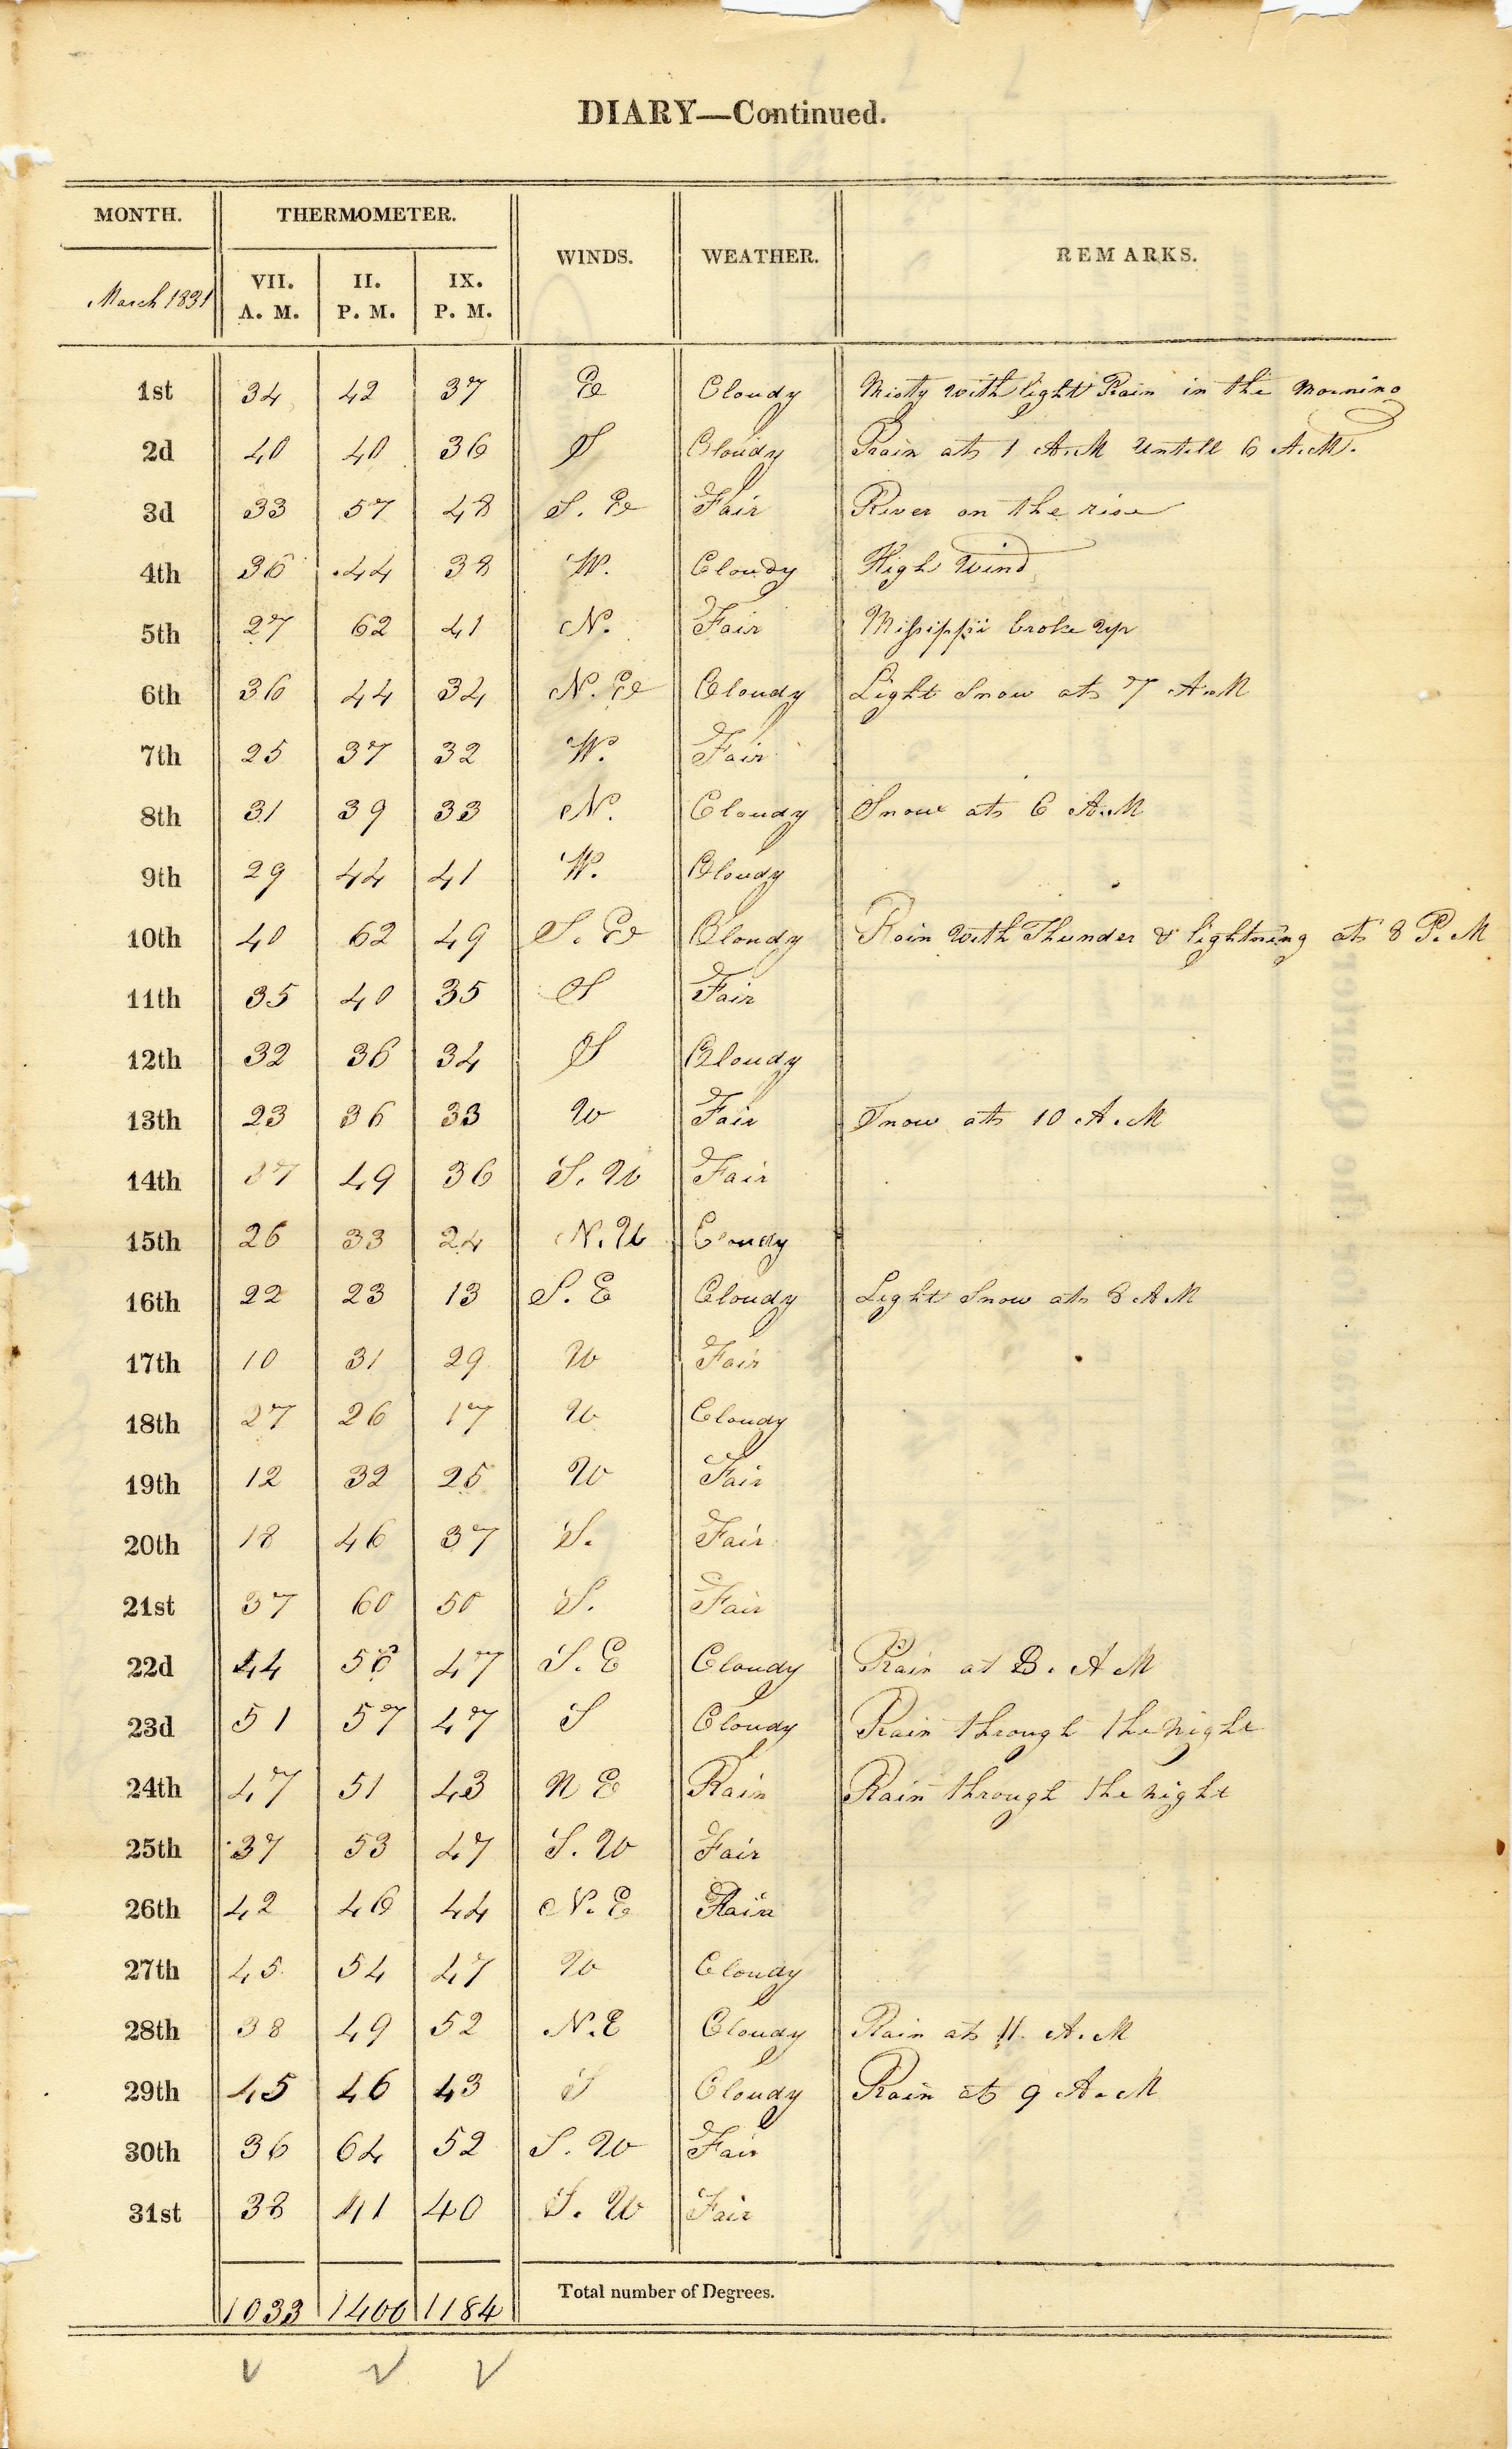 DIARY—Continued.
MONTH. THERMOMETER. WINDS. WEATHER. REMARKS.
March 1831 VII. A. M. II. P. M. IX. P. M.
1st 34 42 37 E Cloudy Misty with light Rain in the morning
2d 40 40 36 S Cloudy Rain at 1 A.M untill 6 A.M.
3d 33 57 48 S. E Fair River on the rise
4th 36 44 38 W. Cloudy High Wind
5th 27 62 41 N. Fair Missisippi broke up
6th 36 44 34 N. E Cloudy Light Snow at 7 A.M
7th 25 37 32 W. Fair
8th 31 39 33 N. Cloudy Snow at 6 A.M
9th 29 44 41 W. Cloudy
10th 40 62 49 S. E Cloudy Rain with Thunder & lightning at 8 P. M
11th 35 40 35 S Fair
12th 32 36 34 S Cloudy
13th 23 36 33 W Fair Snow at 10 A.M
14th 37 49 36 S. W Fair
15th 26 33 24 N. W Cloudy
16th 22 23 13 S. E Cloudy Light Snow at 8 A M
17th 10 31 29 W Fair
18th 27 26 17 W Cloudy
19th 12 32 25 W Fair
20th 18 46 37 S. Fair
21st 37 60 50 S. Fair
22d 44 58 47 S. E Cloudy Rain at 8. A M
23d 51 57 47 S Cloudy Rain through the night
24th 47 51 43 N E Rain Rain through the night
25th 37 53 47 S. W Fair
26th 42 46 44 N. E Rain
27th 45 54 47 W Cloudy
28th 38 49 52 N. E Cloudy Rain at 11. A. M
29th 45 46 43 S Cloudy Rain at 9 A. M
30th 36 64 52 S. W Fair
31st 38 41 40 S. W Fair
1033 1400 1184 Total number of Degrees.